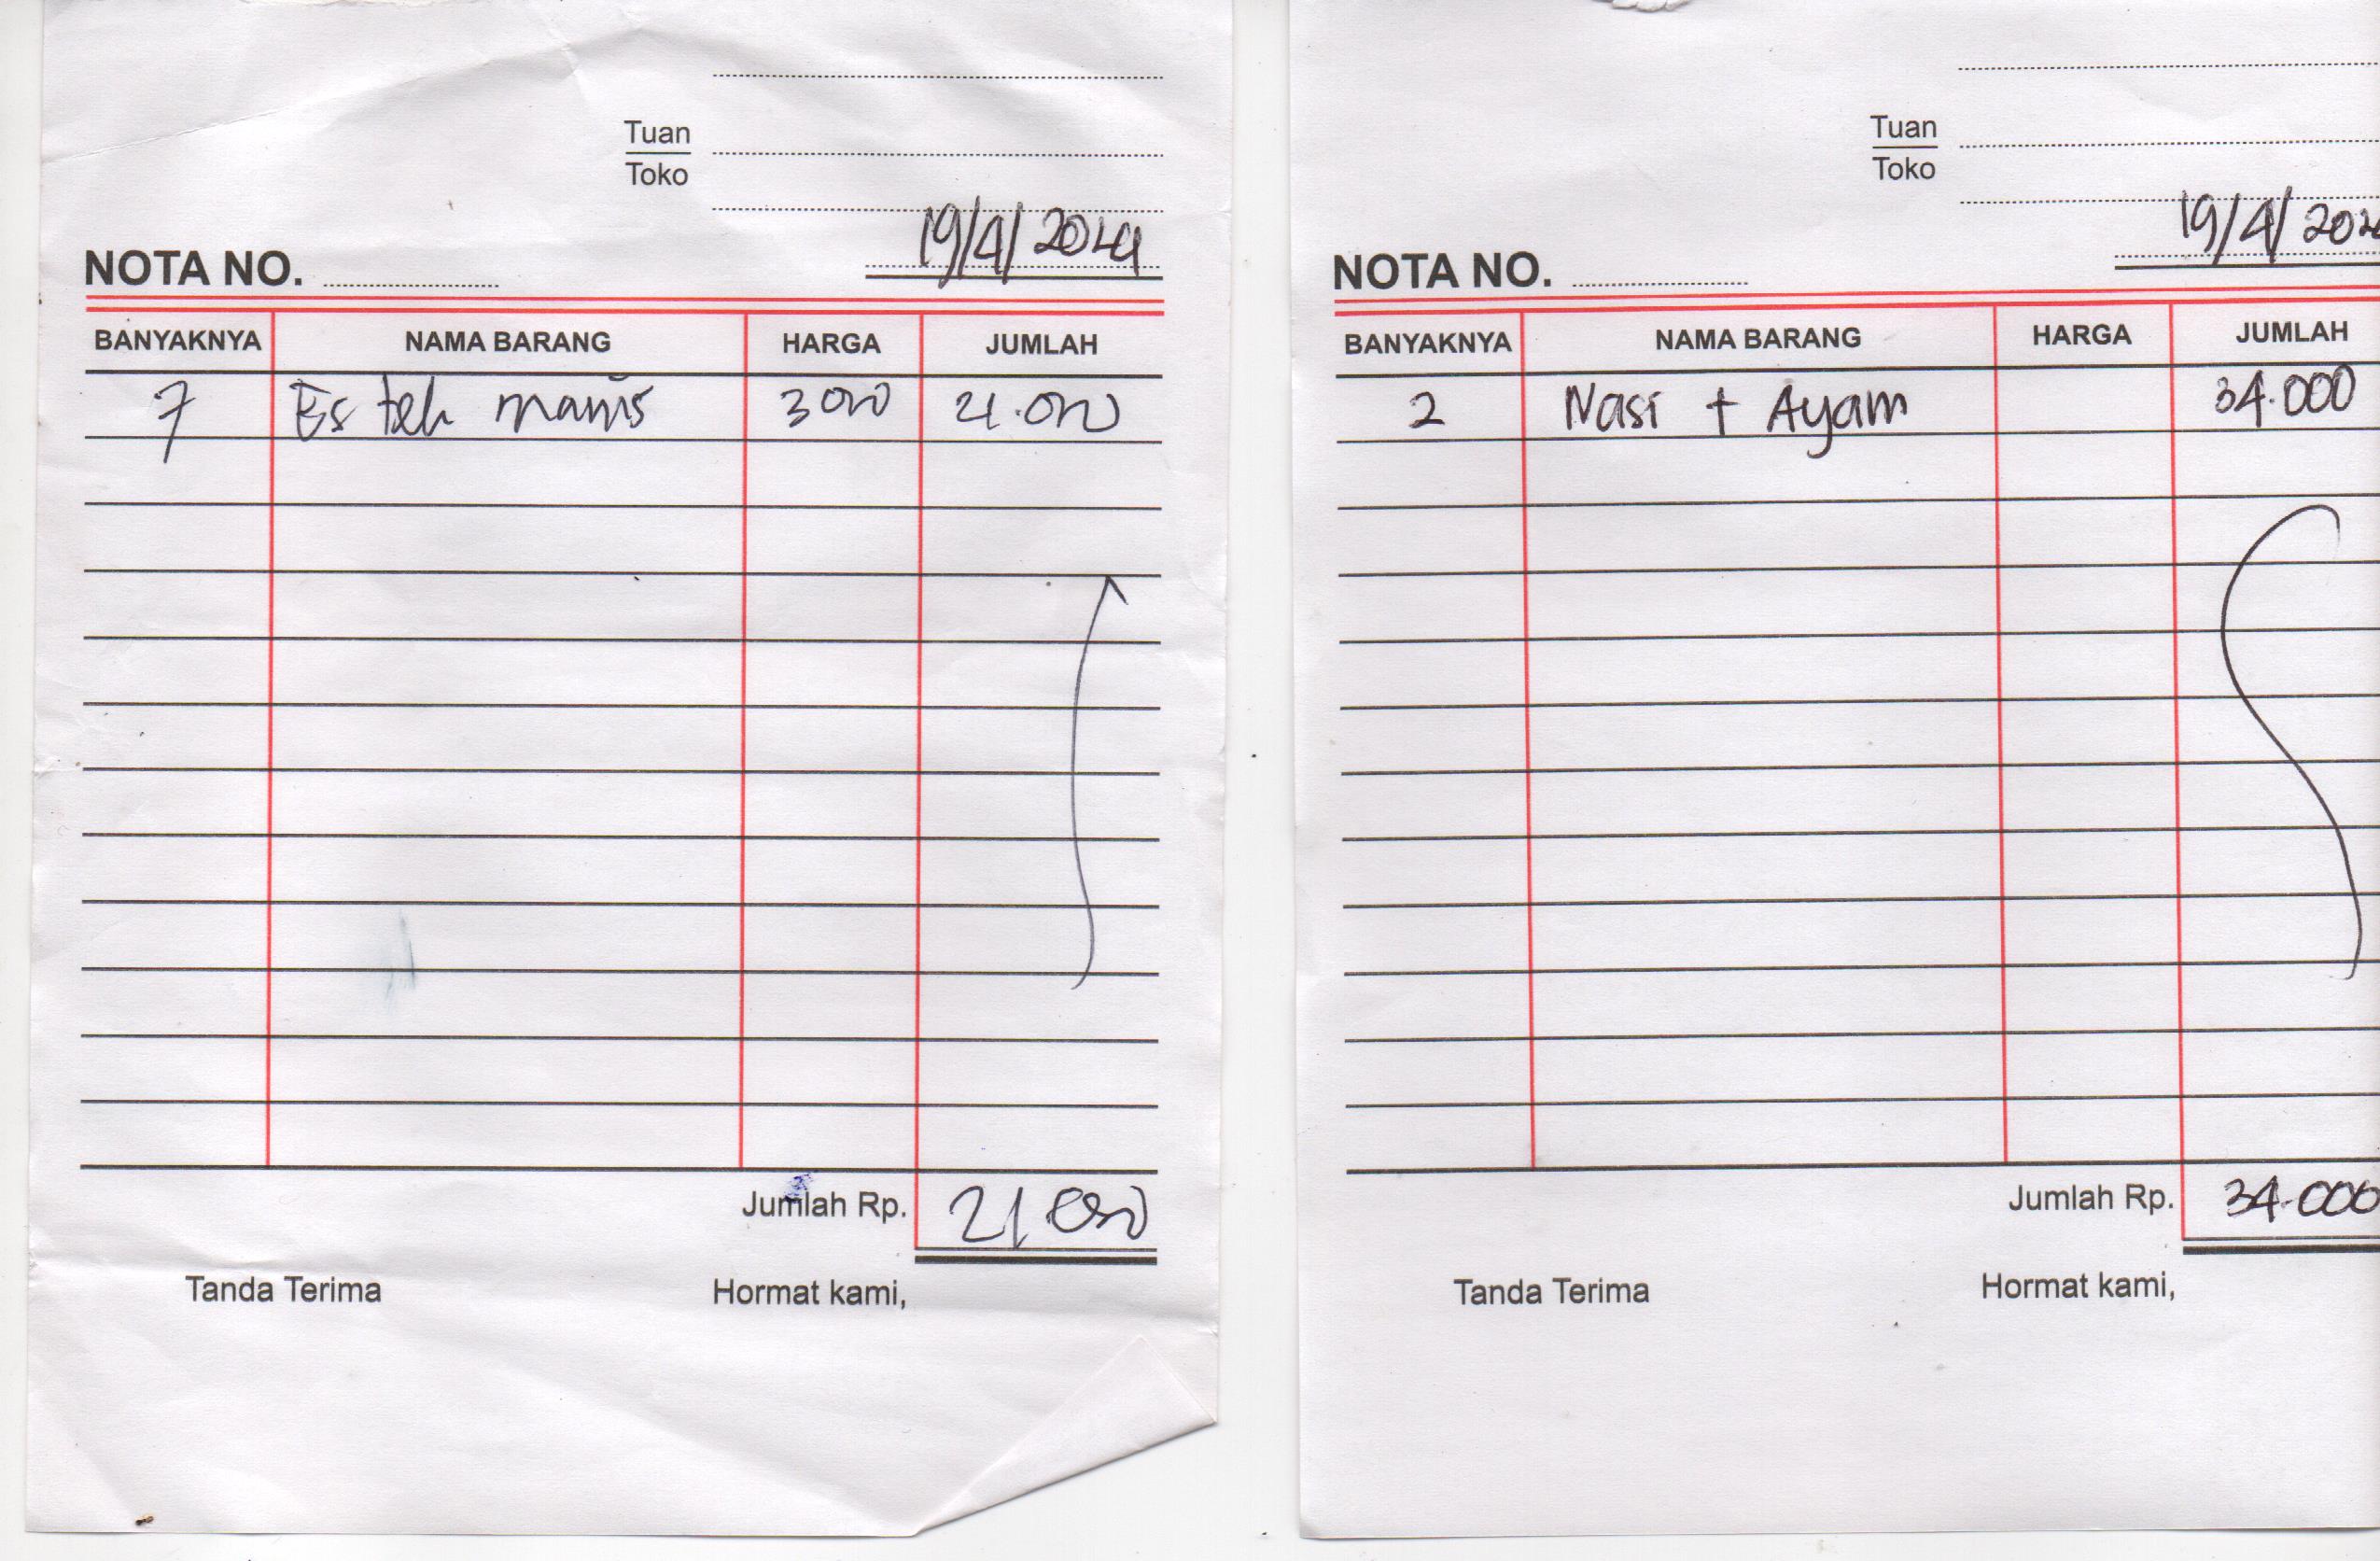 Tuan
Toko
19/4/2024
NOTA NO.
BANYAKNYA NAMA BARANG HARGA JUMLAH
7 Es teh manis 3000 21.000
Jumlah Rp. 21.000
Tanda Terima Hormat kami,
Tuan
Toko
19/4/202
NOTA NO.
BANYAKNYA NAMA BARANG HARGA JUMLAH
2 Nasi + Ayam 34.000
Jumlah Rp. 34.000
Tanda Terima Hormat kami,